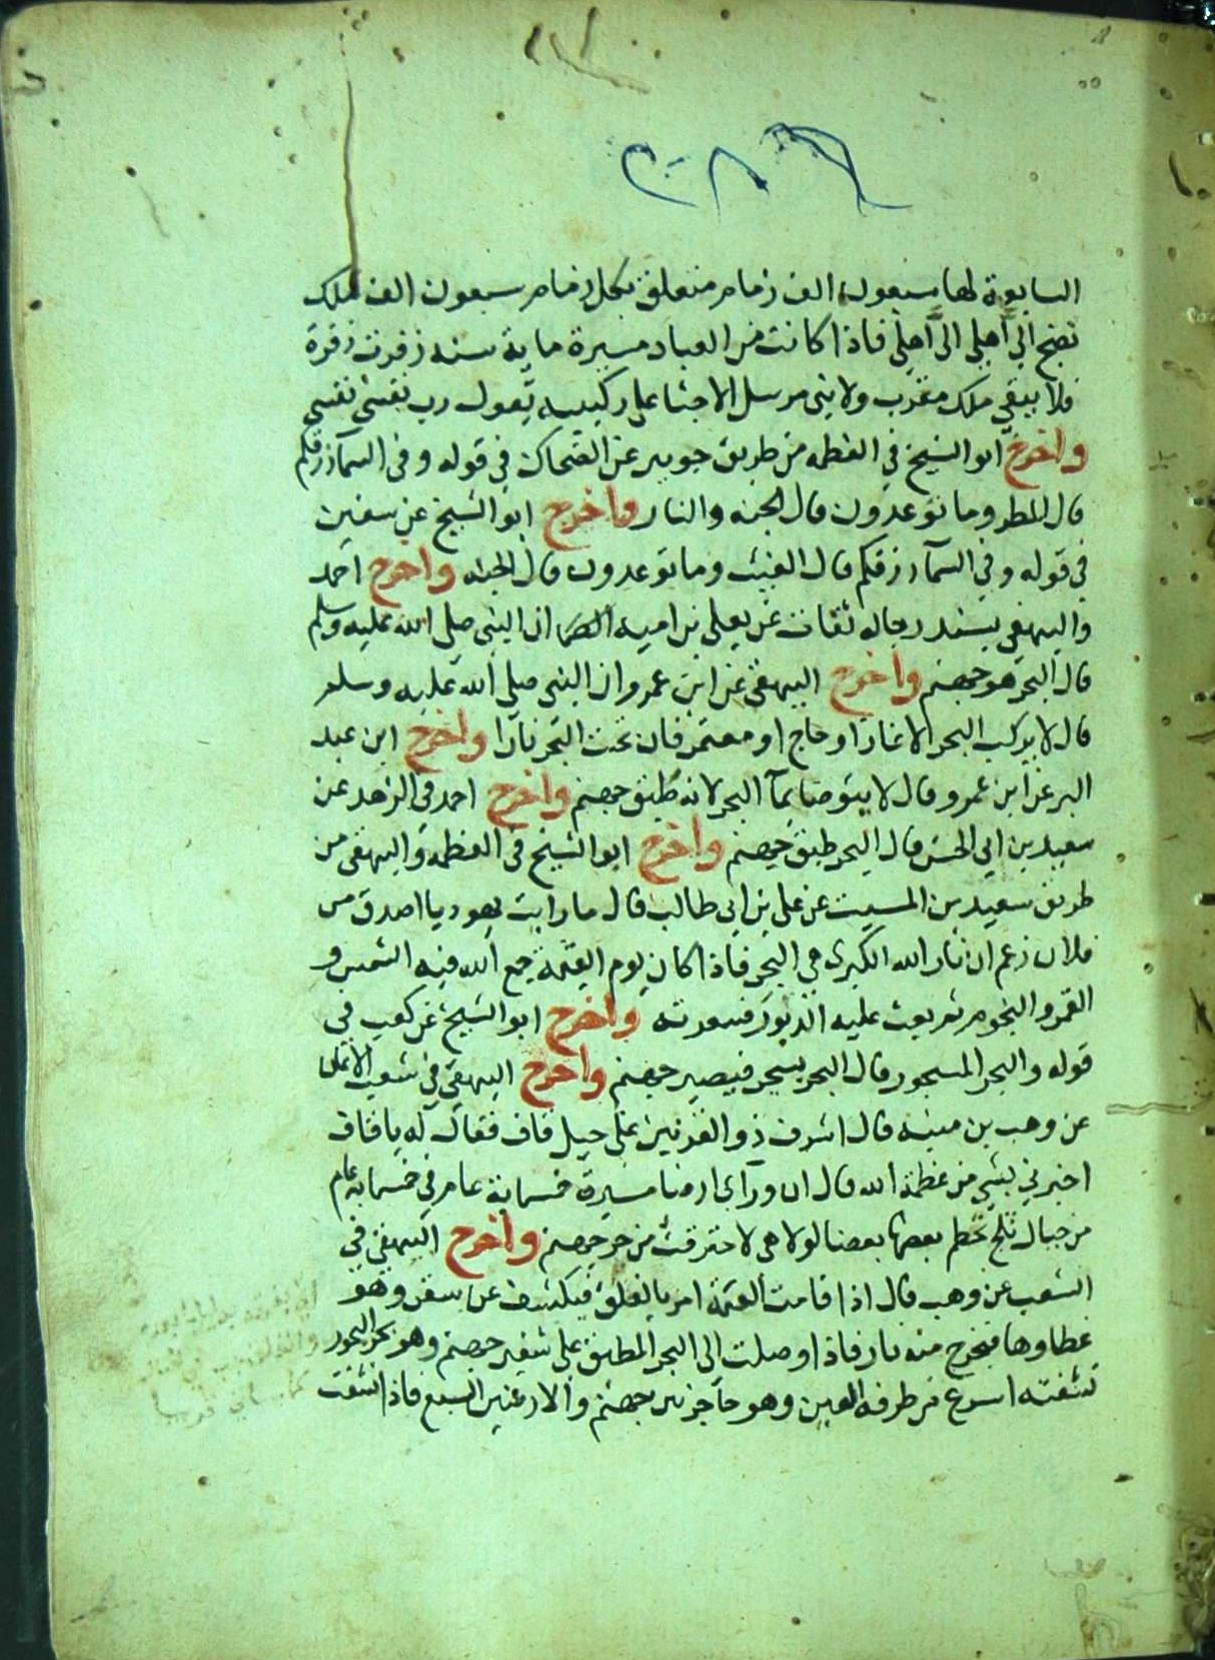 السابعة لها سبعون الف زمام متعلق بكل زمام سبعون الف ملك
تضج الى اهلى الى اهلى فاذا كانت من العباد مسيرة ماية سنه زفرت زفرة
فلا يبقى ملك مقرب ولا نبى مرسل الا جثا على ركبتيه يقول رب نفسى نفسى
واخرج ابو الشيخ في العظمه من طريق جويبر عن الضحاك في قوله وفى السمآ رزقكم
قال المطر وما توعدون قال الجنه والنار واخرج ابو الشيخ عن سفين
في قوله وفي السمآ رزقكم قال الغيث وما توعدون قال الجنه واخرج احمد
والبيهقي بسند رجاله ثقات عن يعلى بن اميه ان النبى صلى الله عليه وسلم
قال البحر هو جهنم واخرج البيهقي عن ابن عمرو ان النبى صلى الله عليه وسلم
قال لا يركب البحر الا غاز او حاج او معتمر فان تحت البحر نارا واخرج ابن عبد
البر عن ابن عمرو قال لا يتوضا بمآ البحر لانه طبق جهنم واخرج احمد في الزهد عن
سعيد بن ابي الحسن قال البحر طبق جهنم واخرج ابو الشيخ في العظمه والبيهقى من
طريق سعيد بن المسيب عن على بن ابى طالب قال ما رايت يهوديا اصدق من
فلان زعم ان نار الله الكبرى هي البحر فاذا كان يوم القيمة جمع الله فيه الشمس و
القمر والنجوم ثم بعث عليه الدبور فسعرته واخرج ابو الشيخ عن كعب في
قوله والبحر المسجور قال البحر يسجر فيصير جهنم واخرج البيهقي في شعب الايمان
عن وهب بن منبه قال اشرف ذو القرنين على جبل قاف فقال له يا قاف
اخبرني بشى من عظمة الله قال ان ورآى ارضا مسيرة خسماية عام في خسماية عام
من جبال ثلج تحطم بعضها بعضا لولا هى لاحترقت من حر جهنم واخرج البيهقى في
الشعب عن وهب قال اذا قامت القيمة امر بالفلق فيكشف عن سقر وهو
غطاوها فيخرج منه نار فاذا وصلت الى البحر المطبق على شفير جهنم وهو بحر البحور
نشفته اسرع من طرفه العين وهو حاجز بين جهنم والارضين السبع فاذا نشفت